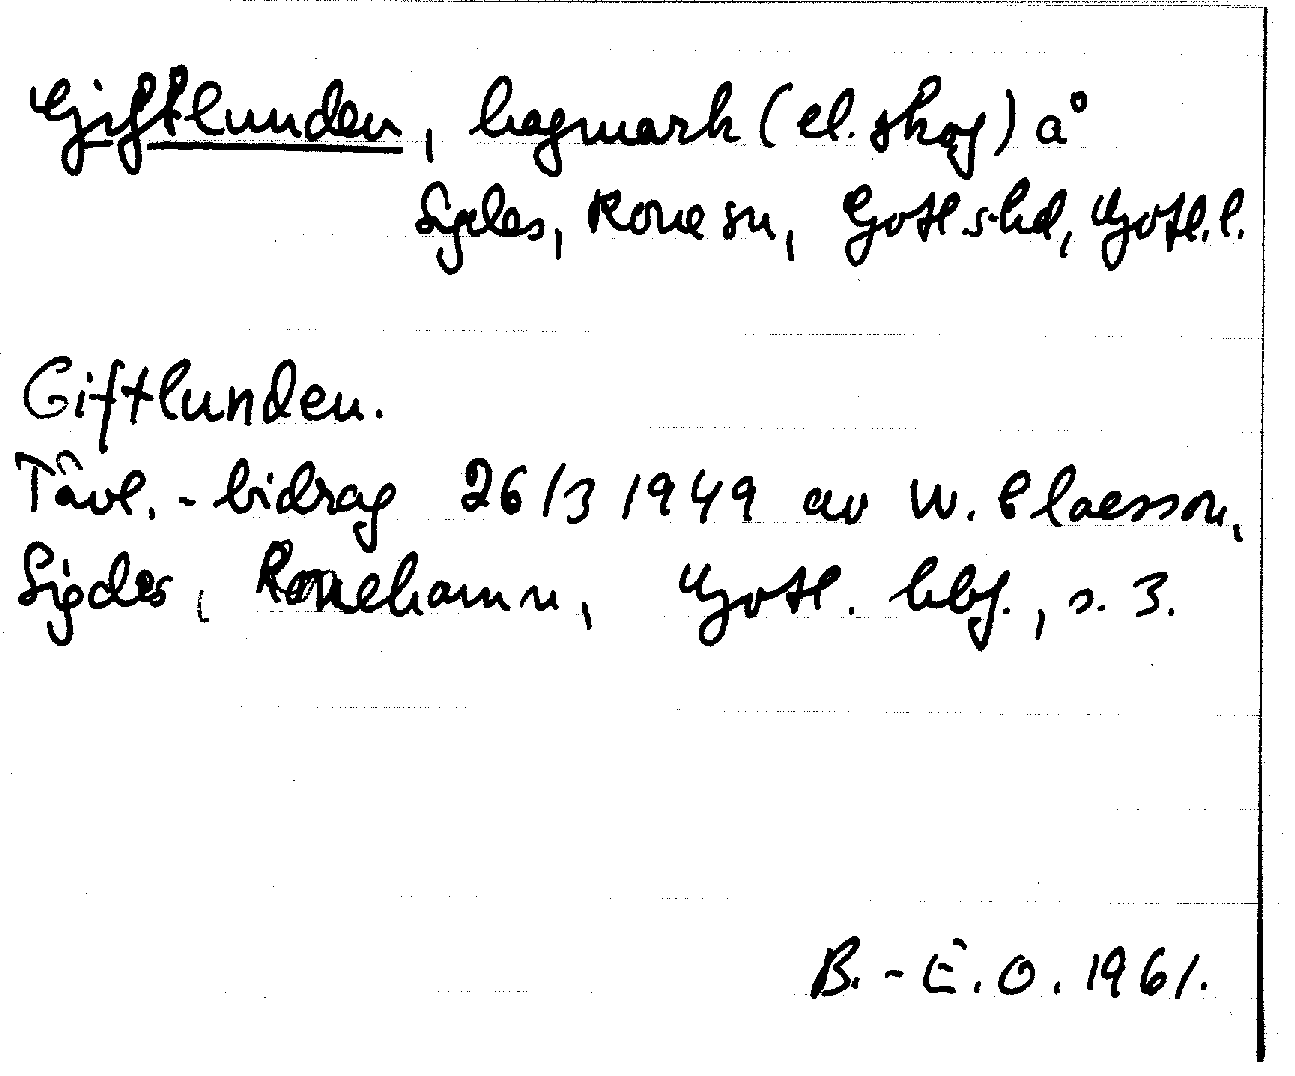 Giftlunden, hagmark (el. skog) å
Sigdes, Rone sn, Gotl. s. hd, Gotl. l.
Giftlunden.
Tävl. - bidrag 26/3 1949 av W. Claesson,
Sigdes, Ronehamn, Gotl. hbf., s. 3.
B. - E. O. 1961.